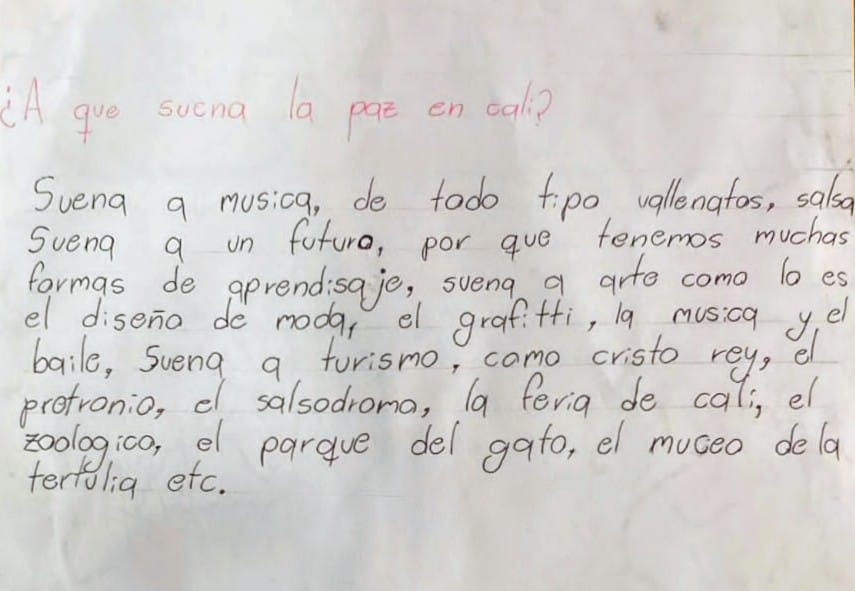 ¿A que suena la paz en cali?
Suena a musica, de todo tipo vallenatos, salsa
Suena a un futuro, por que tenemos muchas
formas de aprendisaje, suena a arte como lo es
el diseño de moda, el grafitti, la musica y el
baile, Suena a turismo, como cristo rey, el
protronio, el salsodromo, la feria de cali, el
zoologico, el parque del gato, el muceo de la
tertulia etc.